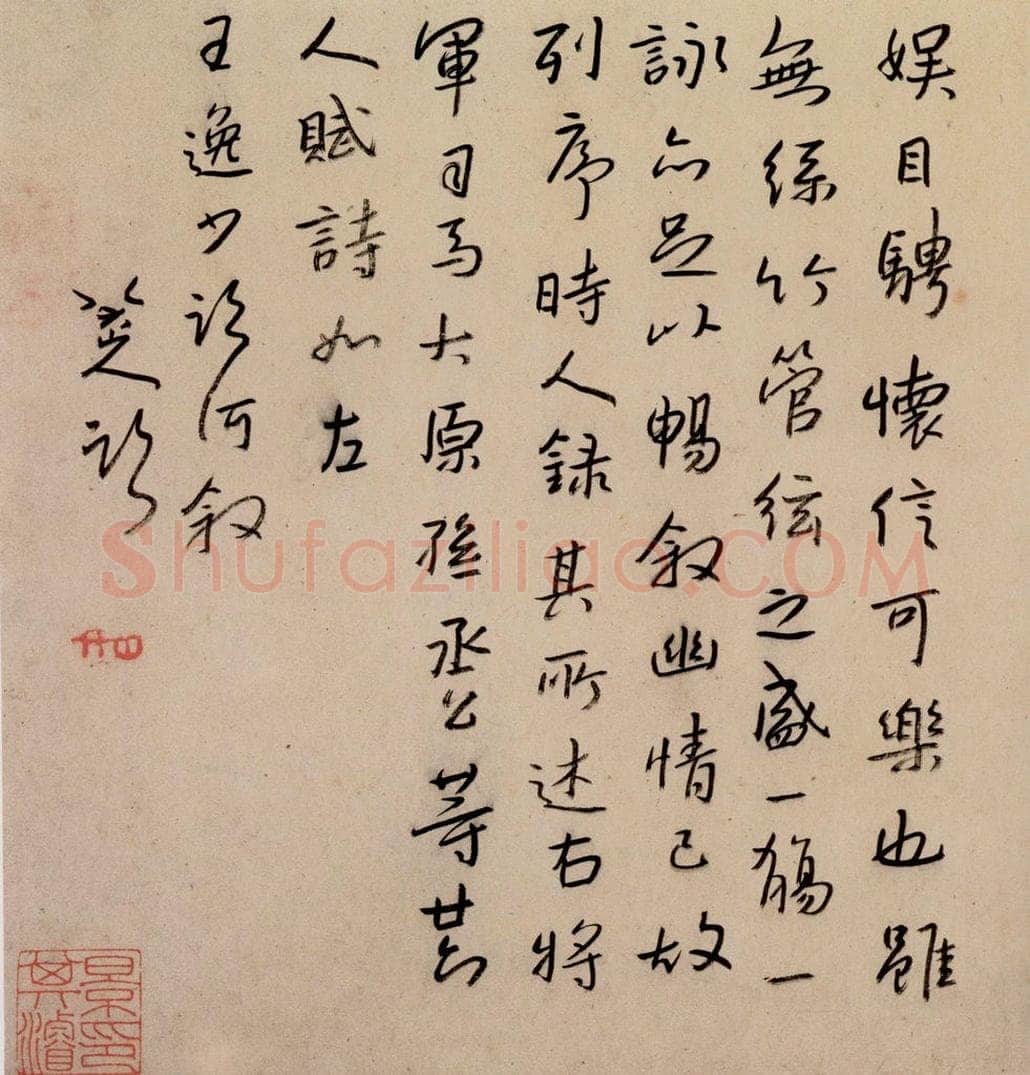 娱目騁懷信可樂也雖
無絲竹管絃之盛一觴一
詠亦足以暢敘幽情已故
列序時人録其所述右將
軍司馬太原孫丞公等廿六
人賦詩如左
王逸少臨河叙
八大山人臨
景印
其濬
Shufaziliao.COM